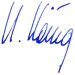 U. König